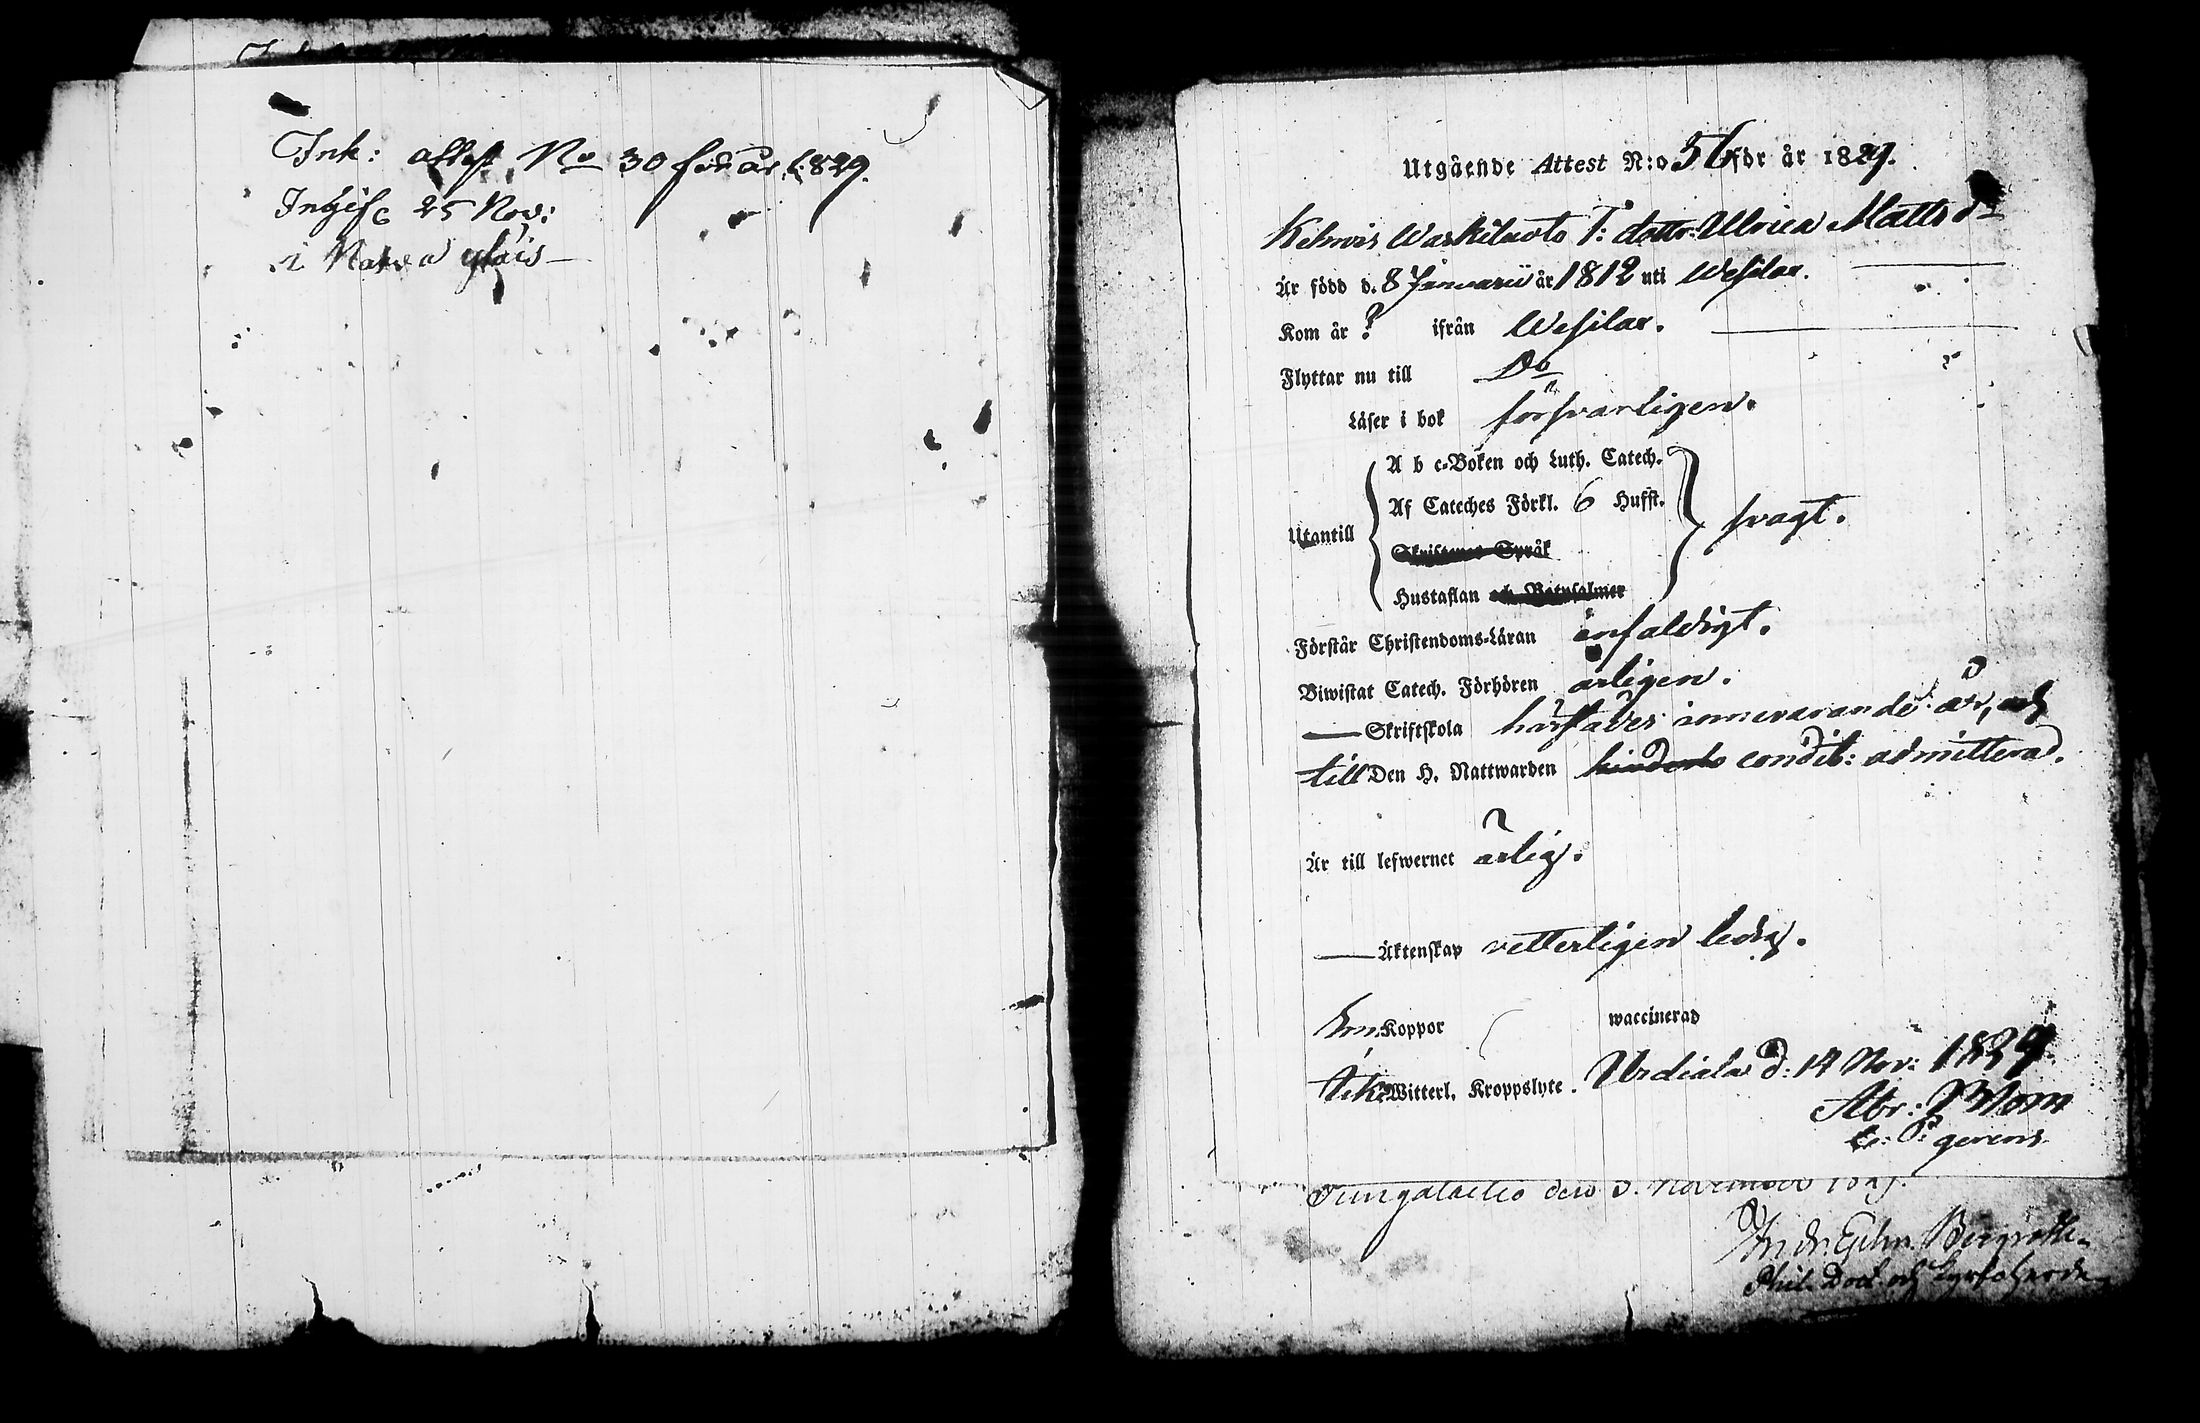 Ink: attest No 30 för år 1829.
25 Nov:
Utgående Attest N:o 56 för år 1829.
Waskiluoto T: dotter Ulrica Matts dr
Är född d. 8 Januarii år 1812 uti Wesilax.
Kom år ? ifrån Wesilax.
Flyttar nu till Do
Läser i bok försvarligen.
A b c-Boken och Luth. Catech.
Af Cateches Förkl. 6 Hufst.
Utantill svagt.
Skriftenes Språk
Hustaflan och Botpsalmer
Förstår Christendoms-Läran enfaldigt.
Biwistat Catech. Förhören årligen.
— Skriftskola härstädes innevarande år, och
till Den H. Nattwarden condit: admitterad.
Är till lefwernet ärlig.
— Äktenskap vetterligen ledig.
Koppor waccinerad
Witterl. Kroppslyte. Urdiala d: 14 Nov: 1829.
Abr:
gerens
den 3. November 1829.
Bergroth
Phil. Doct. och Kyrkoherde